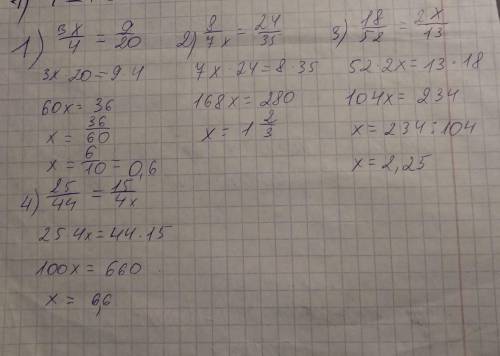 1) 3x/4 = 9/20
3x 20 = 9 4
60x = 36
x = 36/60
x = 6/10 = 0,6
2) 8/7x = 24/35
7x · 24 = 8 · 35
168x = 280
x = 1 2/3
3) 18/52 = 2x/13
52 · 2x = 13 · 18
104x = 234
x = 234 : 104
x = 2,25
4) 25/44 = 15/4x
25 4x = 44 · 15
100x = 660
x = 6,6